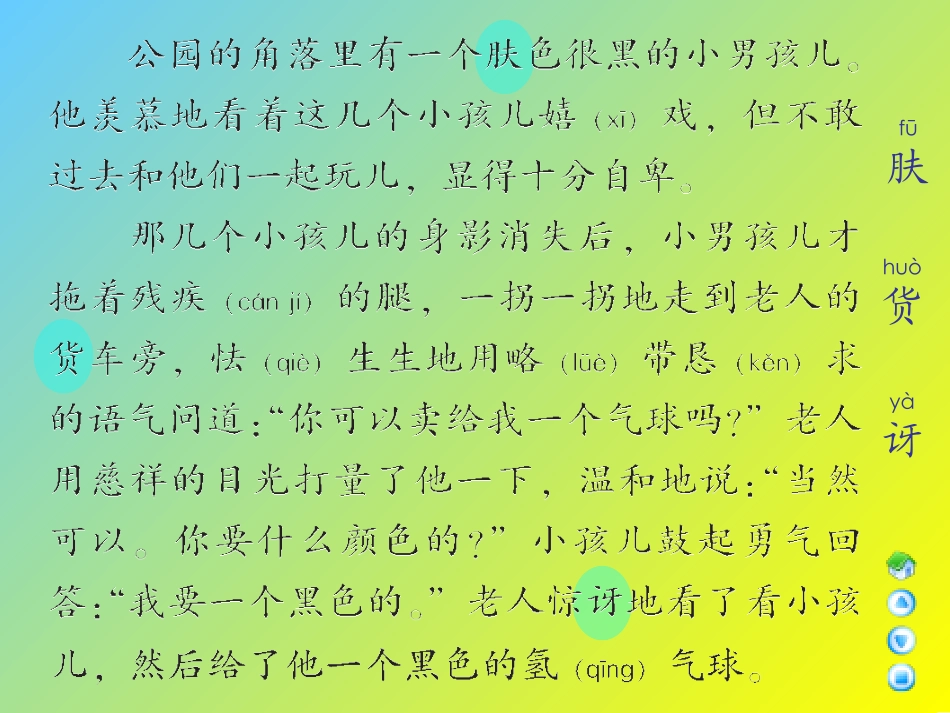 公园的角落里有一个肤色很黑的小男孩儿。
他羡慕地看着这几个小孩儿嬉（xī）戏，但不敢
过去和他们一起玩儿，显得十分自卑。
那几个小孩儿的身影消失后，小男孩儿才
拖着残疾（cán jí）的腿，一拐一拐地走到老人的
货车旁，怯（qiè）生生地用略（lüè）带恳（kěn）求
的语气问道：“你可以卖给我一个气球吗？”老人
用慈祥的目光打量了他一下，温和地说：“当然
可以。你要什么颜色的？”小孩儿鼓起勇气回
答：“我要一个黑色的。”老人惊讶地看了看小孩
儿，然后给了他一个黑色的氢（qīng）气球。
fū
肤
huò
货
yà
讶